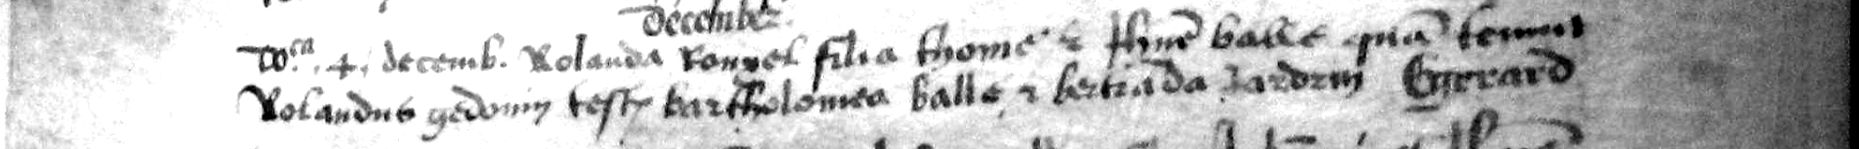 December
Do.ca 4. decemb. Rolanda Rouxel filia thome & Jhne balle quā tenuit
Rolandus gedouin test bartholomea balle & bertrāda Jardrin Egerard